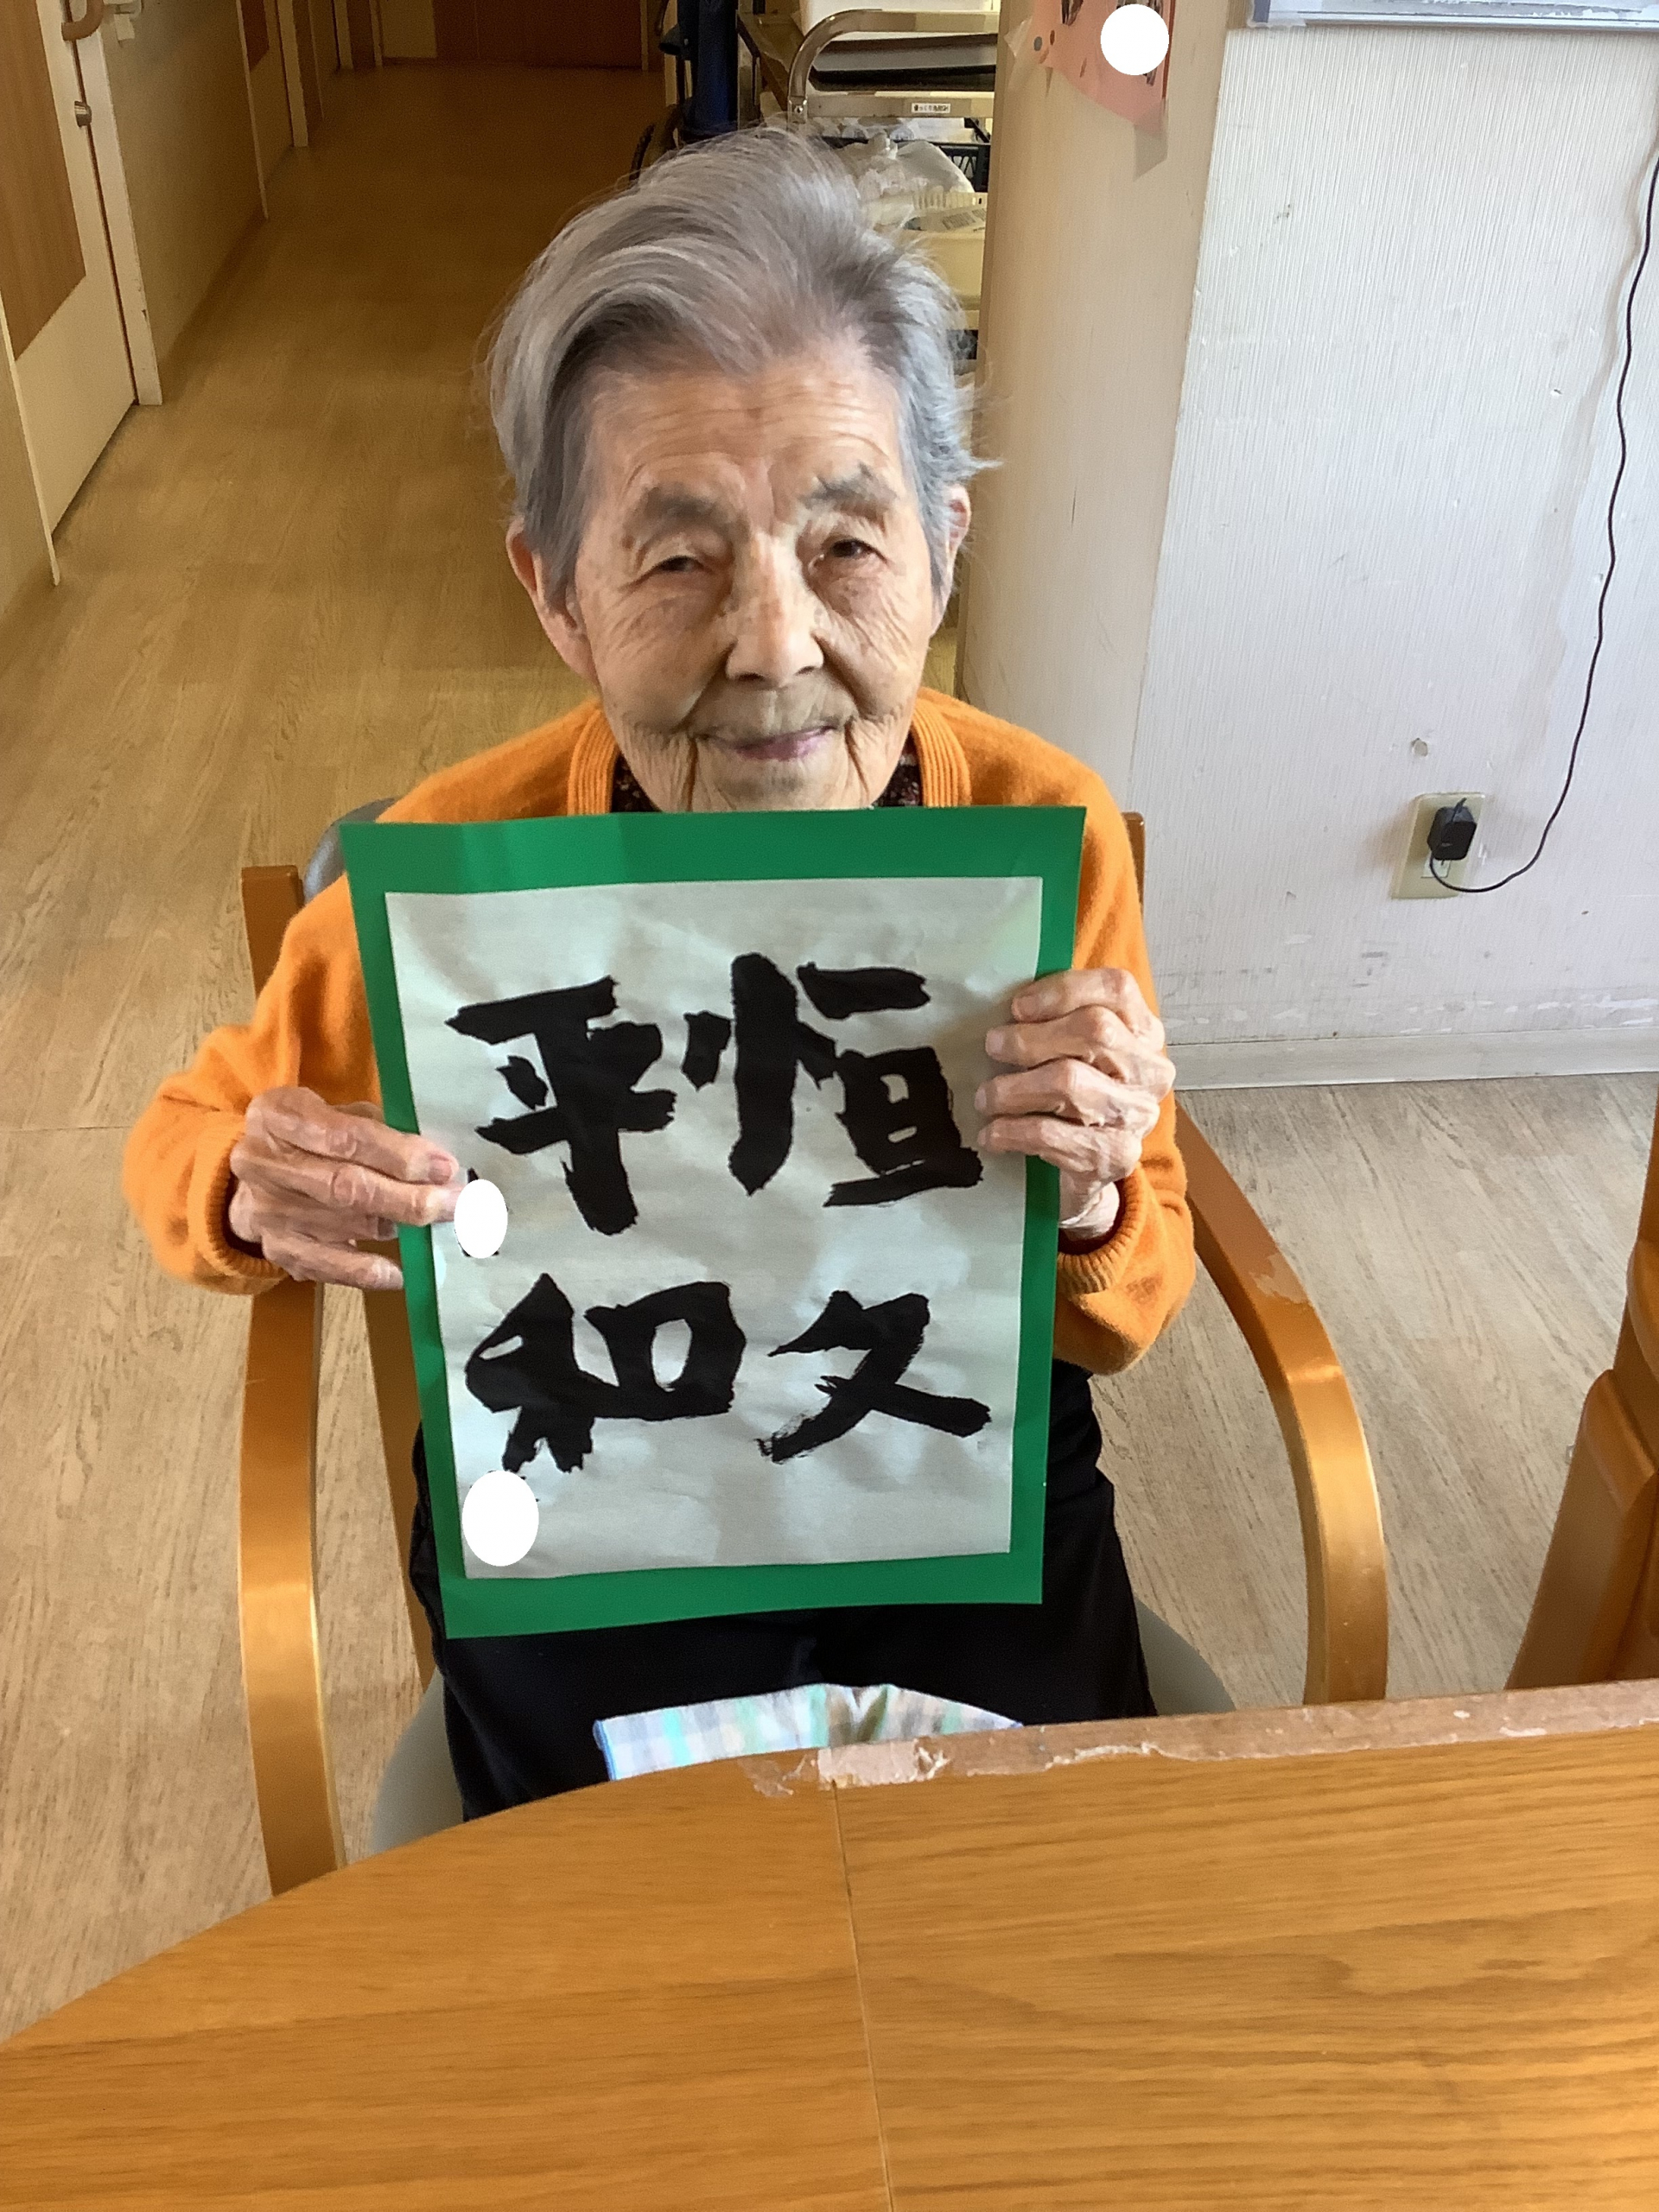 恒久
平和